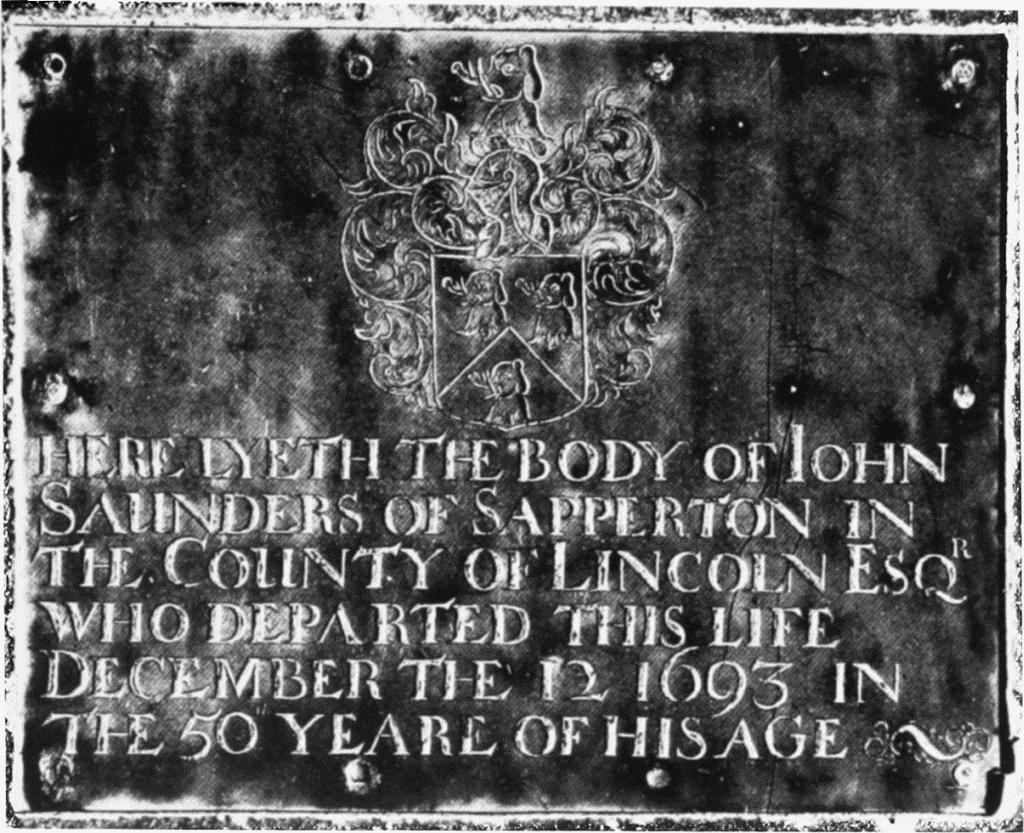 HERE LYETH THE BODY OF IOHN
SAUNDERS OF SAPPERTON IN
THE COUNTY OF LINCOLN ESQR
WHO DEPARTED THIS LIFE
DECEMBER THE 12 1693 IN
THE 50 YEARE OF HIS AGE